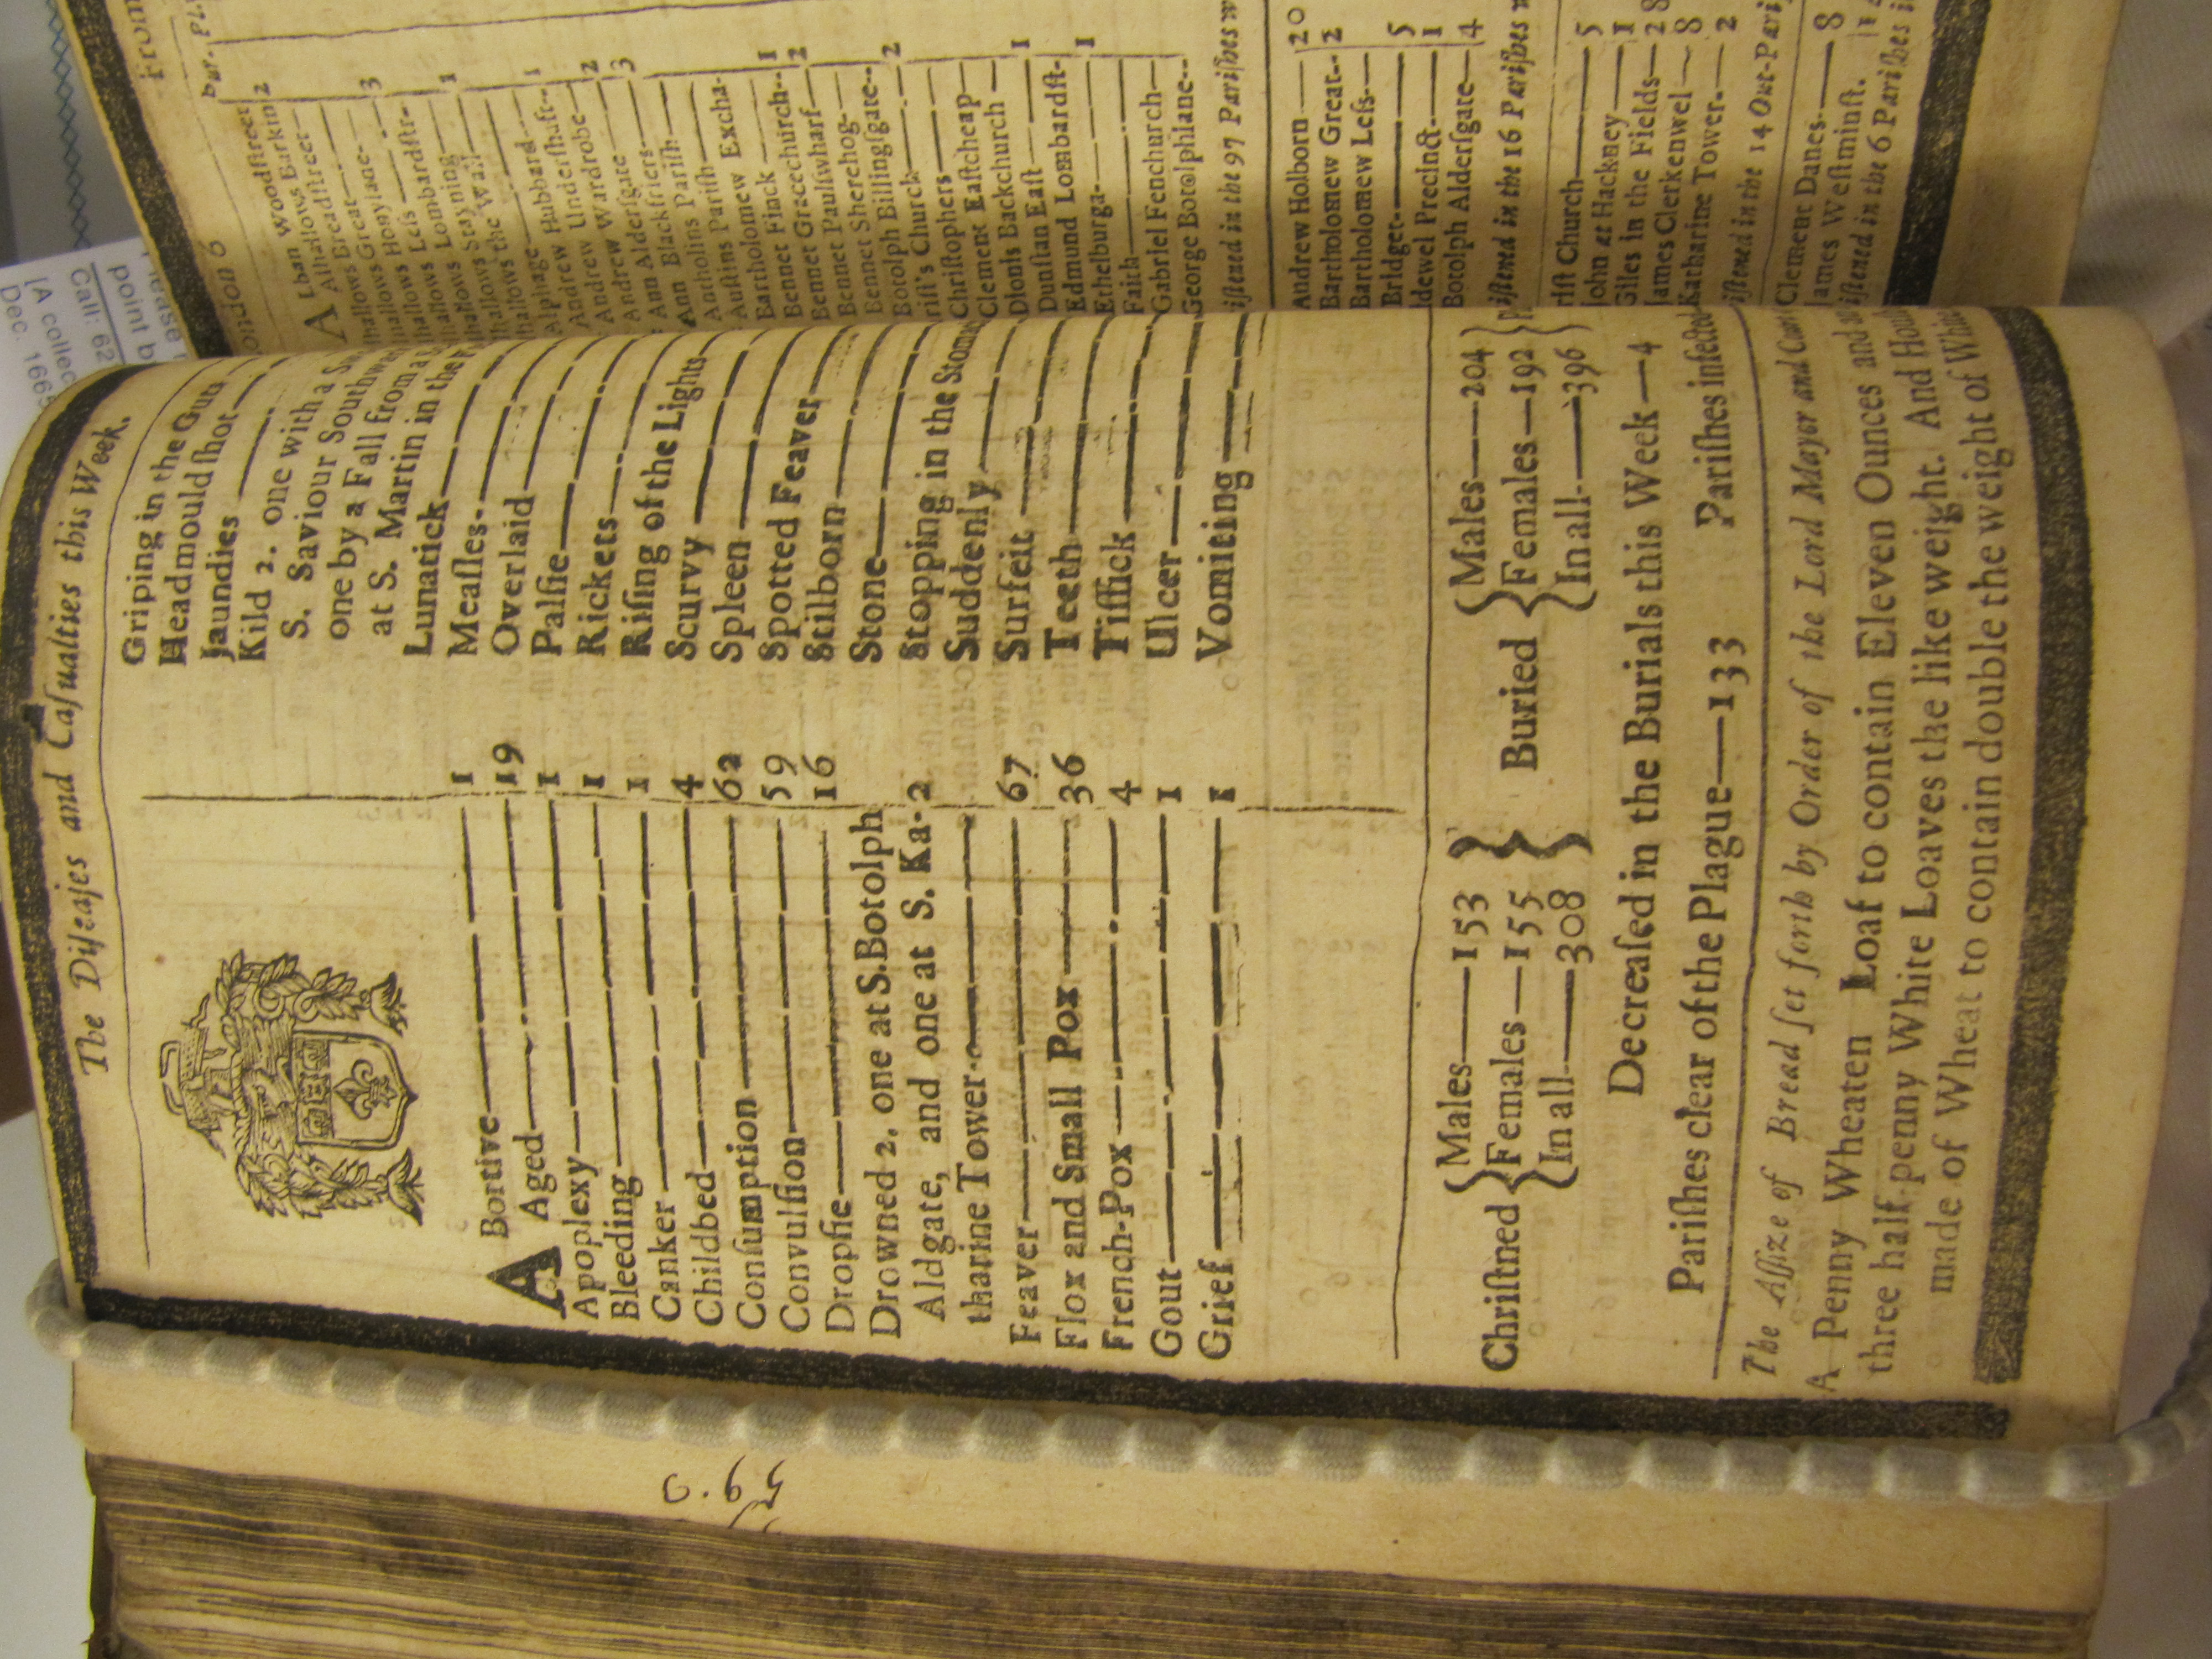 The Diſeaſes and Caſualties this Week.
ABortive 1
Aged 19
Apoplexy 1
Bleeding 1
Canker 1
Childbed 4
Conſumption 62
Convulſion 59
Dropſie 16
Drowned 2. one at S. Botolph
Aldgate, and one at S. Ka- 2
tharine Tower
Feaver 67
Flox and Small Pox 36
French-Pox 4
Gout 1
Grief 1
Griping in the Guts
Headmould ſhot
Jaundies
Kild 2. one with a
S. Saviour Southw
one by a Fall from a
at S. Martin in the
Lunatick
Meaſles
Overlaid
Palſie
Rickets
Riſing of the Lights
Scurvy
Spleen
Spotted Feaver
Stilborn
Stone
Stopping in the Stom
Suddenly
Surfeit
Teeth
Tiſſick
Ulcer
Vomiting
Chriſtned { Males 153 Females 155 In all 308 }
Buried { Males 204 Females 192 In all 396 }
Decreaſed in the Burials this Week 4
Pariſhes clear of the Plague 133 Pariſhes infected
The Aſſize of Bread ſet forth by Order of the Lord Mayor and Court
A Penny Wheaten Loaf to contain Eleven Ounces and
three half-penny White Loaves the like weight. And Houſ
made of Wheat to contain double the weight of White
London 6
From
Bur. Pl.
ALban Woodſtreet 2
Alhallows Barkin
Alhallows Breadſtreet
hallows Great 3
hallows Honylane
hallows Leſs
hallows Lombardſtr- 1
hallows Stayning
hallows the Wall
Alphage 1
Andrew Hubbard
Andrew Underſhaft 2
Andrew Wardrobe 3
Ann Alderſgate
Ann Blackfriers
Antholins Pariſh
Auſtins Pariſh
Bartholomew Excha- 1
Bennet Finck 2
Bennet Gracechurch
Bennet Paulſwharf
Bennet Sherehog 2
Botolph Billingſgate
riſt's Church
Chriſtophers
Clement Eaſtcheap
Dionis Backchurch 1
Dunſtan Eaſt
Edmund Lombardſt- 1
Ethelburga
Faith
Gabriel Fenchurch
George Botolphlane
iſtened in the 97 Pariſhes w
Andrew Holborn 20
Bartholomew Great 2
Bartholomew Leſs
Bridget 5
Bridewel Precinct 1
Botolph Alderſgate 4
iſtened in the 16 Pariſhes w
riſt Church 5
John at Hackney 1
Giles in the Fields 28
James Clerkenwel 8
Katharine Tower 2
iſtened in the 14 Out-Pari
Clement Danes 8
James Weſtminſt.
iſtened in the 6 Pariſhes i
point b
Call: 62
[A collec
Dec. 166